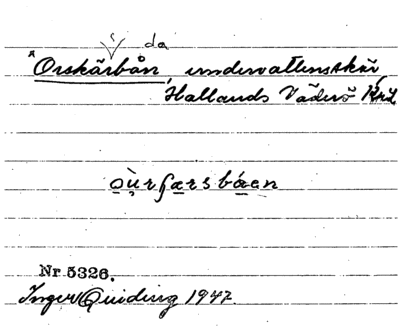 s da
*Orskärbån, undervattensskär,
Hallands Väderö
o̲ù̲rʃæ̲rsbá̲en
Nr 5326.
Inger Quiding 1947.